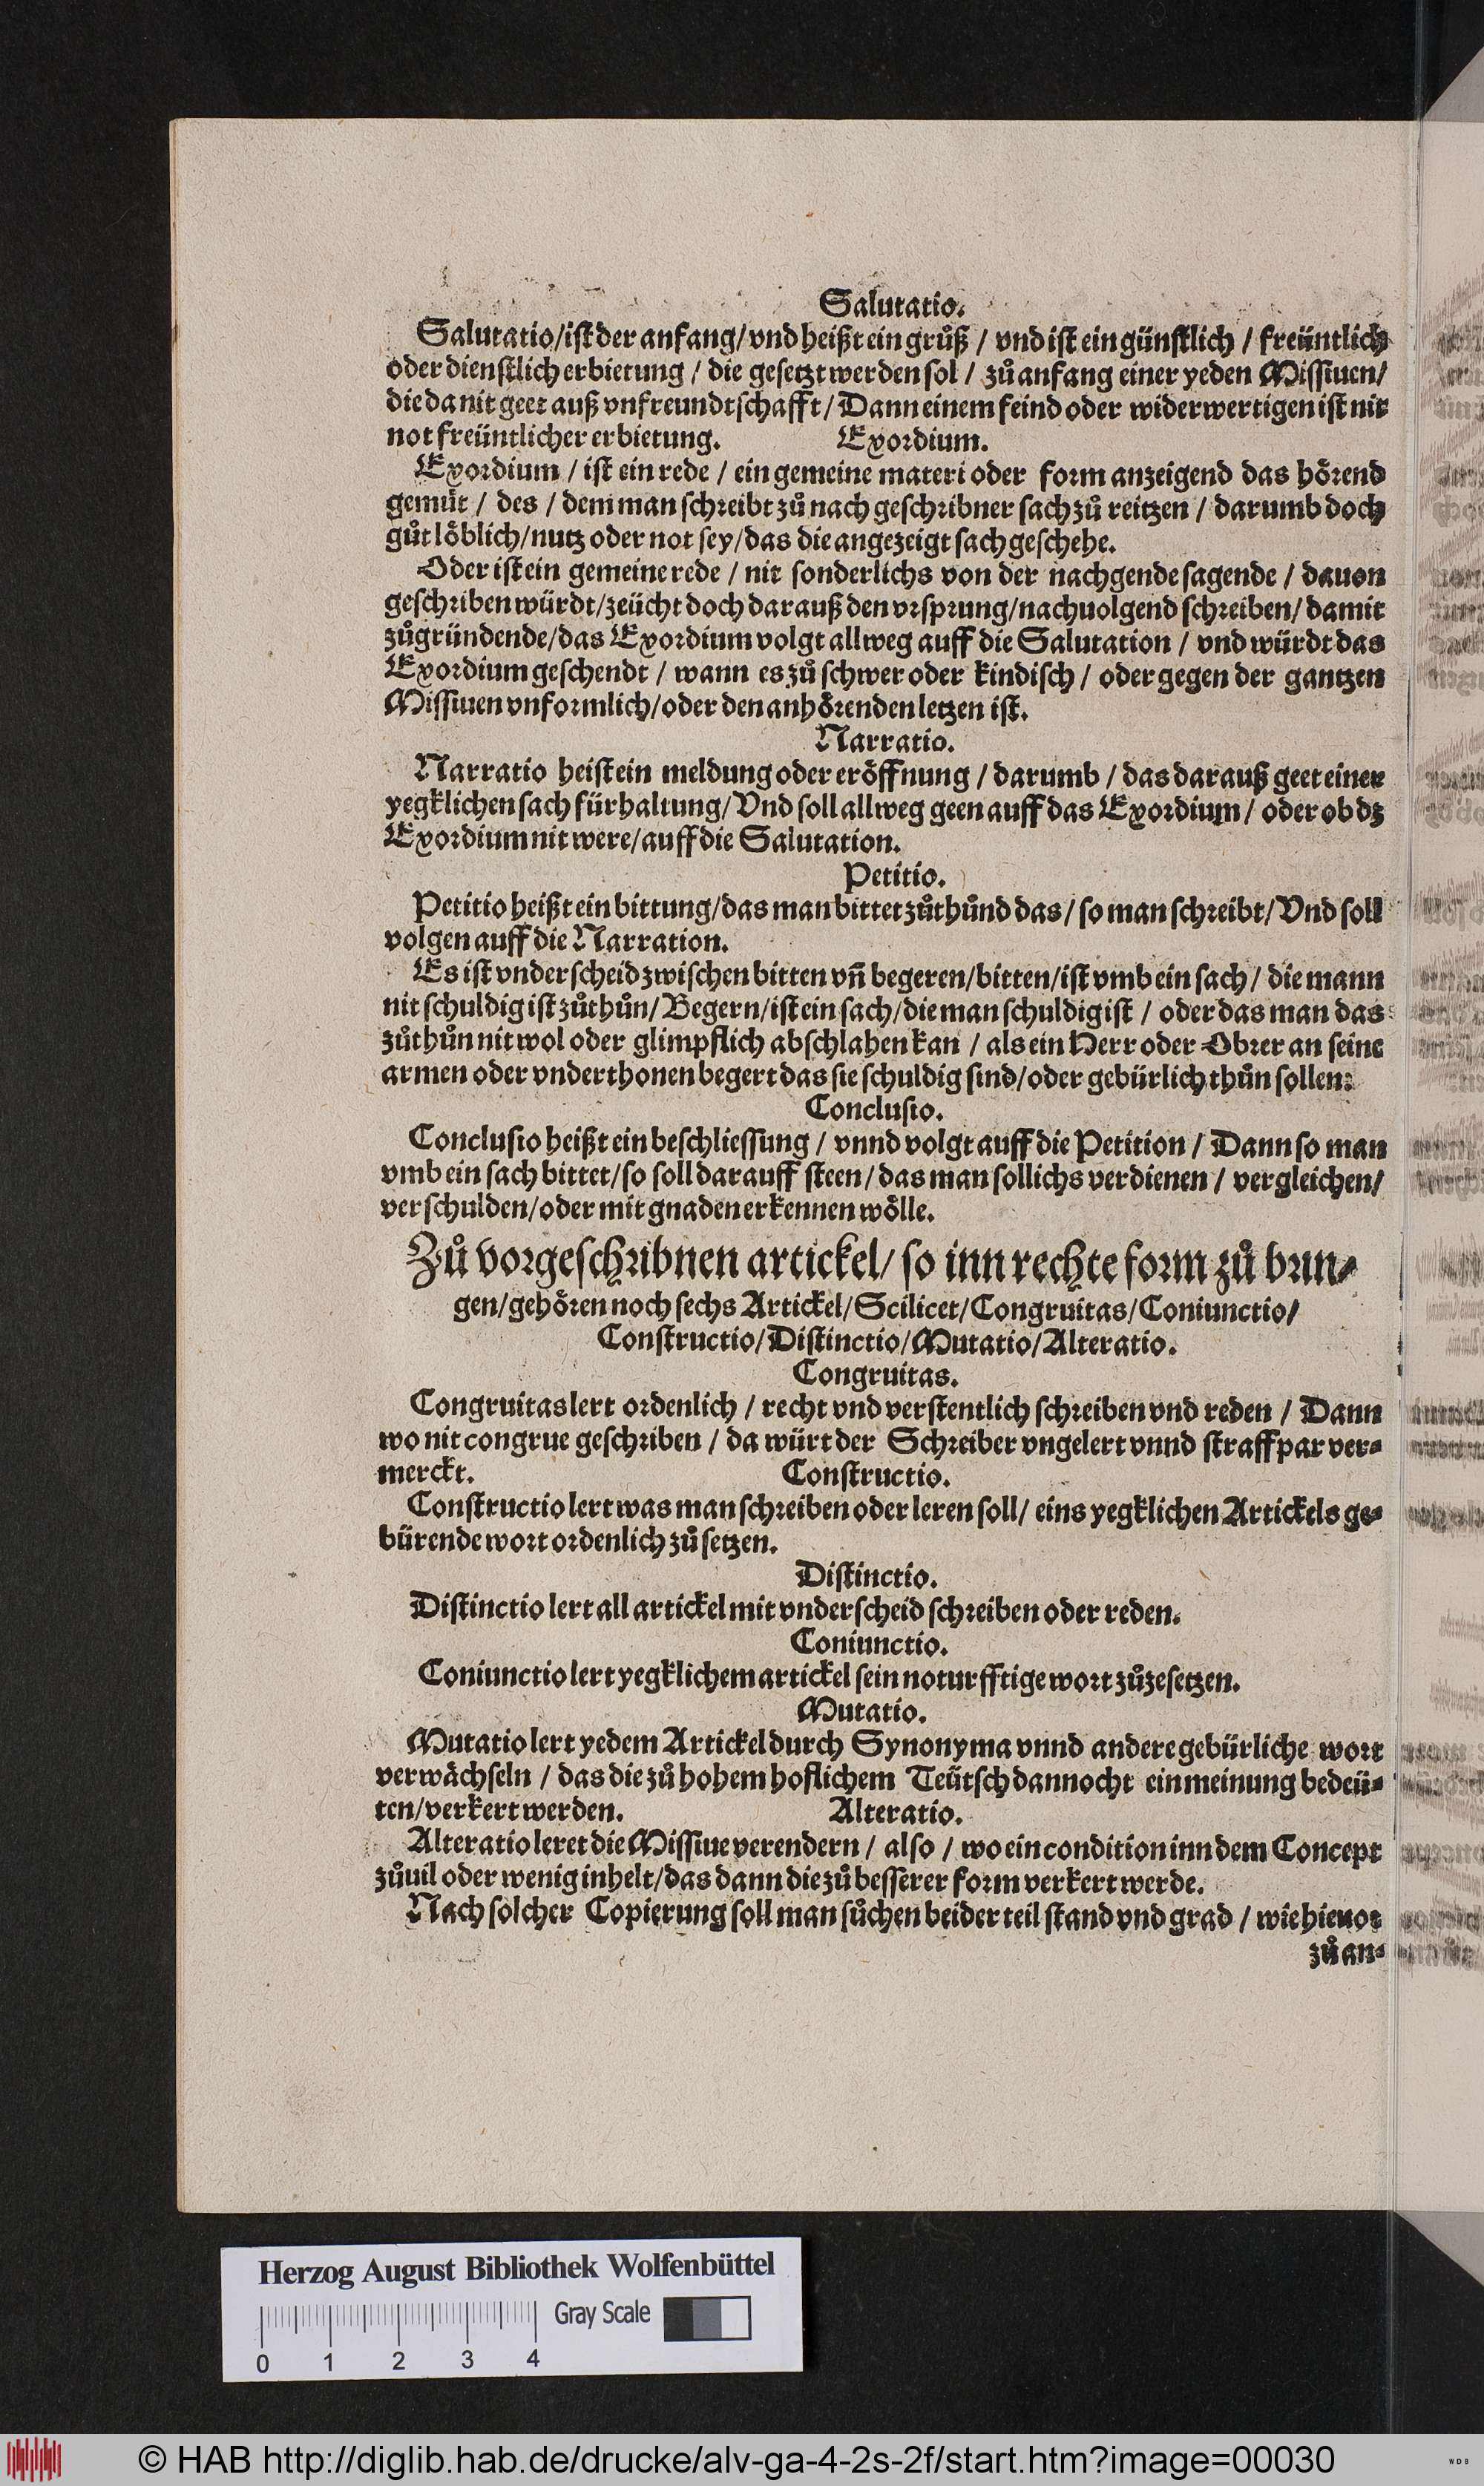 Salutatio.
Salutatio/ist der anfang/vnd heißt ein grůß / vnd ist ein günstlich / freüntlich
oder dienstlich erbietung / die gesetzt werden sol / zů anfang einer yeden Missiuen/
die da nit geet auß vnfreundtschafft/ Dann einem feind oder widerwertigen ist nit
not freüntlicher erbietung. Exordium.
Exordium / ist ein rede / ein gemeine materi oder form anzeigend das hörend
gemüt / des / dem man schreibt zů nach geschribner sach zů reitzen / darumb doch
gůt löblich/nutz oder not sey/das die angezeigt sach geschehe.
Oder ist ein gemeine rede / nit sonderlichs von der nachgende sagende / dauon
geschriben würdt/zeücht doch darauß den vrsprung/nachuolgend schreiben/ damit
zůgründende/das Exordium volgt allweg auff die Salutation / vnd würdt das
Exordium geschendt / wann es zů schwer oder kindisch / oder gegen der gantzen
Missiuen vnformlich/oder den anhörenden letzen ist.
Narratio.
Narratio heist ein meldung oder eröffnung / darumb / das darauß geet einer
yegklichen sach fürhaltung/ Vnd soll allweg geen auff das Exordium/ oder ob dz
Exordium nit were/auff die Salutation.
Petitio.
Petitio heißt ein bittung/das man bittet zůthůnd das/ so man schreibt/ Vnd soll
volgen auff die Narration.
Es ist vnderscheid zwischen bitten vñ begeren/bitten/ist vmb ein sach/ die mann
nit schuldig ist zůthůn/ Begern/ist ein sach/die man schuldig ist / oder das man das
zůthůn nit wol oder glimpflich abschlahen kan / als ein Herr oder Obrer an seine
armen oder vnderthonen begert das sie schuldig sind/oder gebürlich thůn sollen.
Conclusio.
Conclusio heißt ein beschliessung / vnnd volgt auff die Petition / Dann so man
vmb ein sach bittet/so soll darauff steen/das man sollichs verdienen / vergleichen/
verschulden/oder mit gnaden erkennen wölle.
Zů vorgeschribnen artickel/ so inn rechte form zů brin⸗
gen/gehören noch sechs Artickel/Scilicet/Congruitas/Coniunctio/
Constructio/Distinctio/Mutatio/Alteratio.
Congruitas.
Congruitas lert ordenlich / recht vnd verstentlich schreiben vnd reden / Dann
wo nit congrue geschriben / da würt der Schreiber vngelert vnnd straffpar ver⸗
merckt. Constructio.
Constructio lert was man schreiben oder leren soll/ eins yegklichen Artickels ge⸗
bürende wort ordenlich zů setzen.
Distinctio.
Distinctio lert all artickel mit vnderscheid schreiben oder reden.
Coniunctio.
Coniunctio lert yegklichem artickel sein noturfftige wort zůzesetzen.
Mutatio.
Mutatio lert yedem Artickel durch Synonyma vnnd andere gebürliche wort
verwächseln / das die zů hohem hoflichem Teütsch dannocht ein meinung bedeü⸗
ten/verkert werden. Alteratio.
Alteratio leret die Missiue verendern / also / wo ein condition inn dem Concept
zůuil oder wenig inhelt/das dann die zů besserer form verkert werde.
Nach solcher Copierung soll man sůchen beider teil stand vnd grad / wie hieuor
zů an⸗
Herzog August Bibliothek Wolfenbüttel
Gray Scale
0 1 2 3 4
© HAB http://diglib.hab.de/drucke/alv-ga-4-2s-2f/start.htm?image=00030
WDB